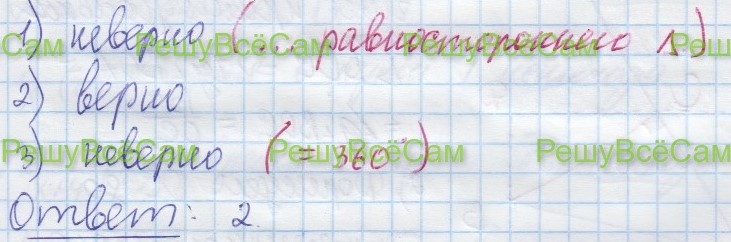 1) неверно (... равностороннего Δ)
2) верно
3) неверно (= 360°)
Ответ: 2.
Сам РешуВсёСам РешуВсёСам Решу
РешуВсёСам РешуВсёСам РешуВсёСам